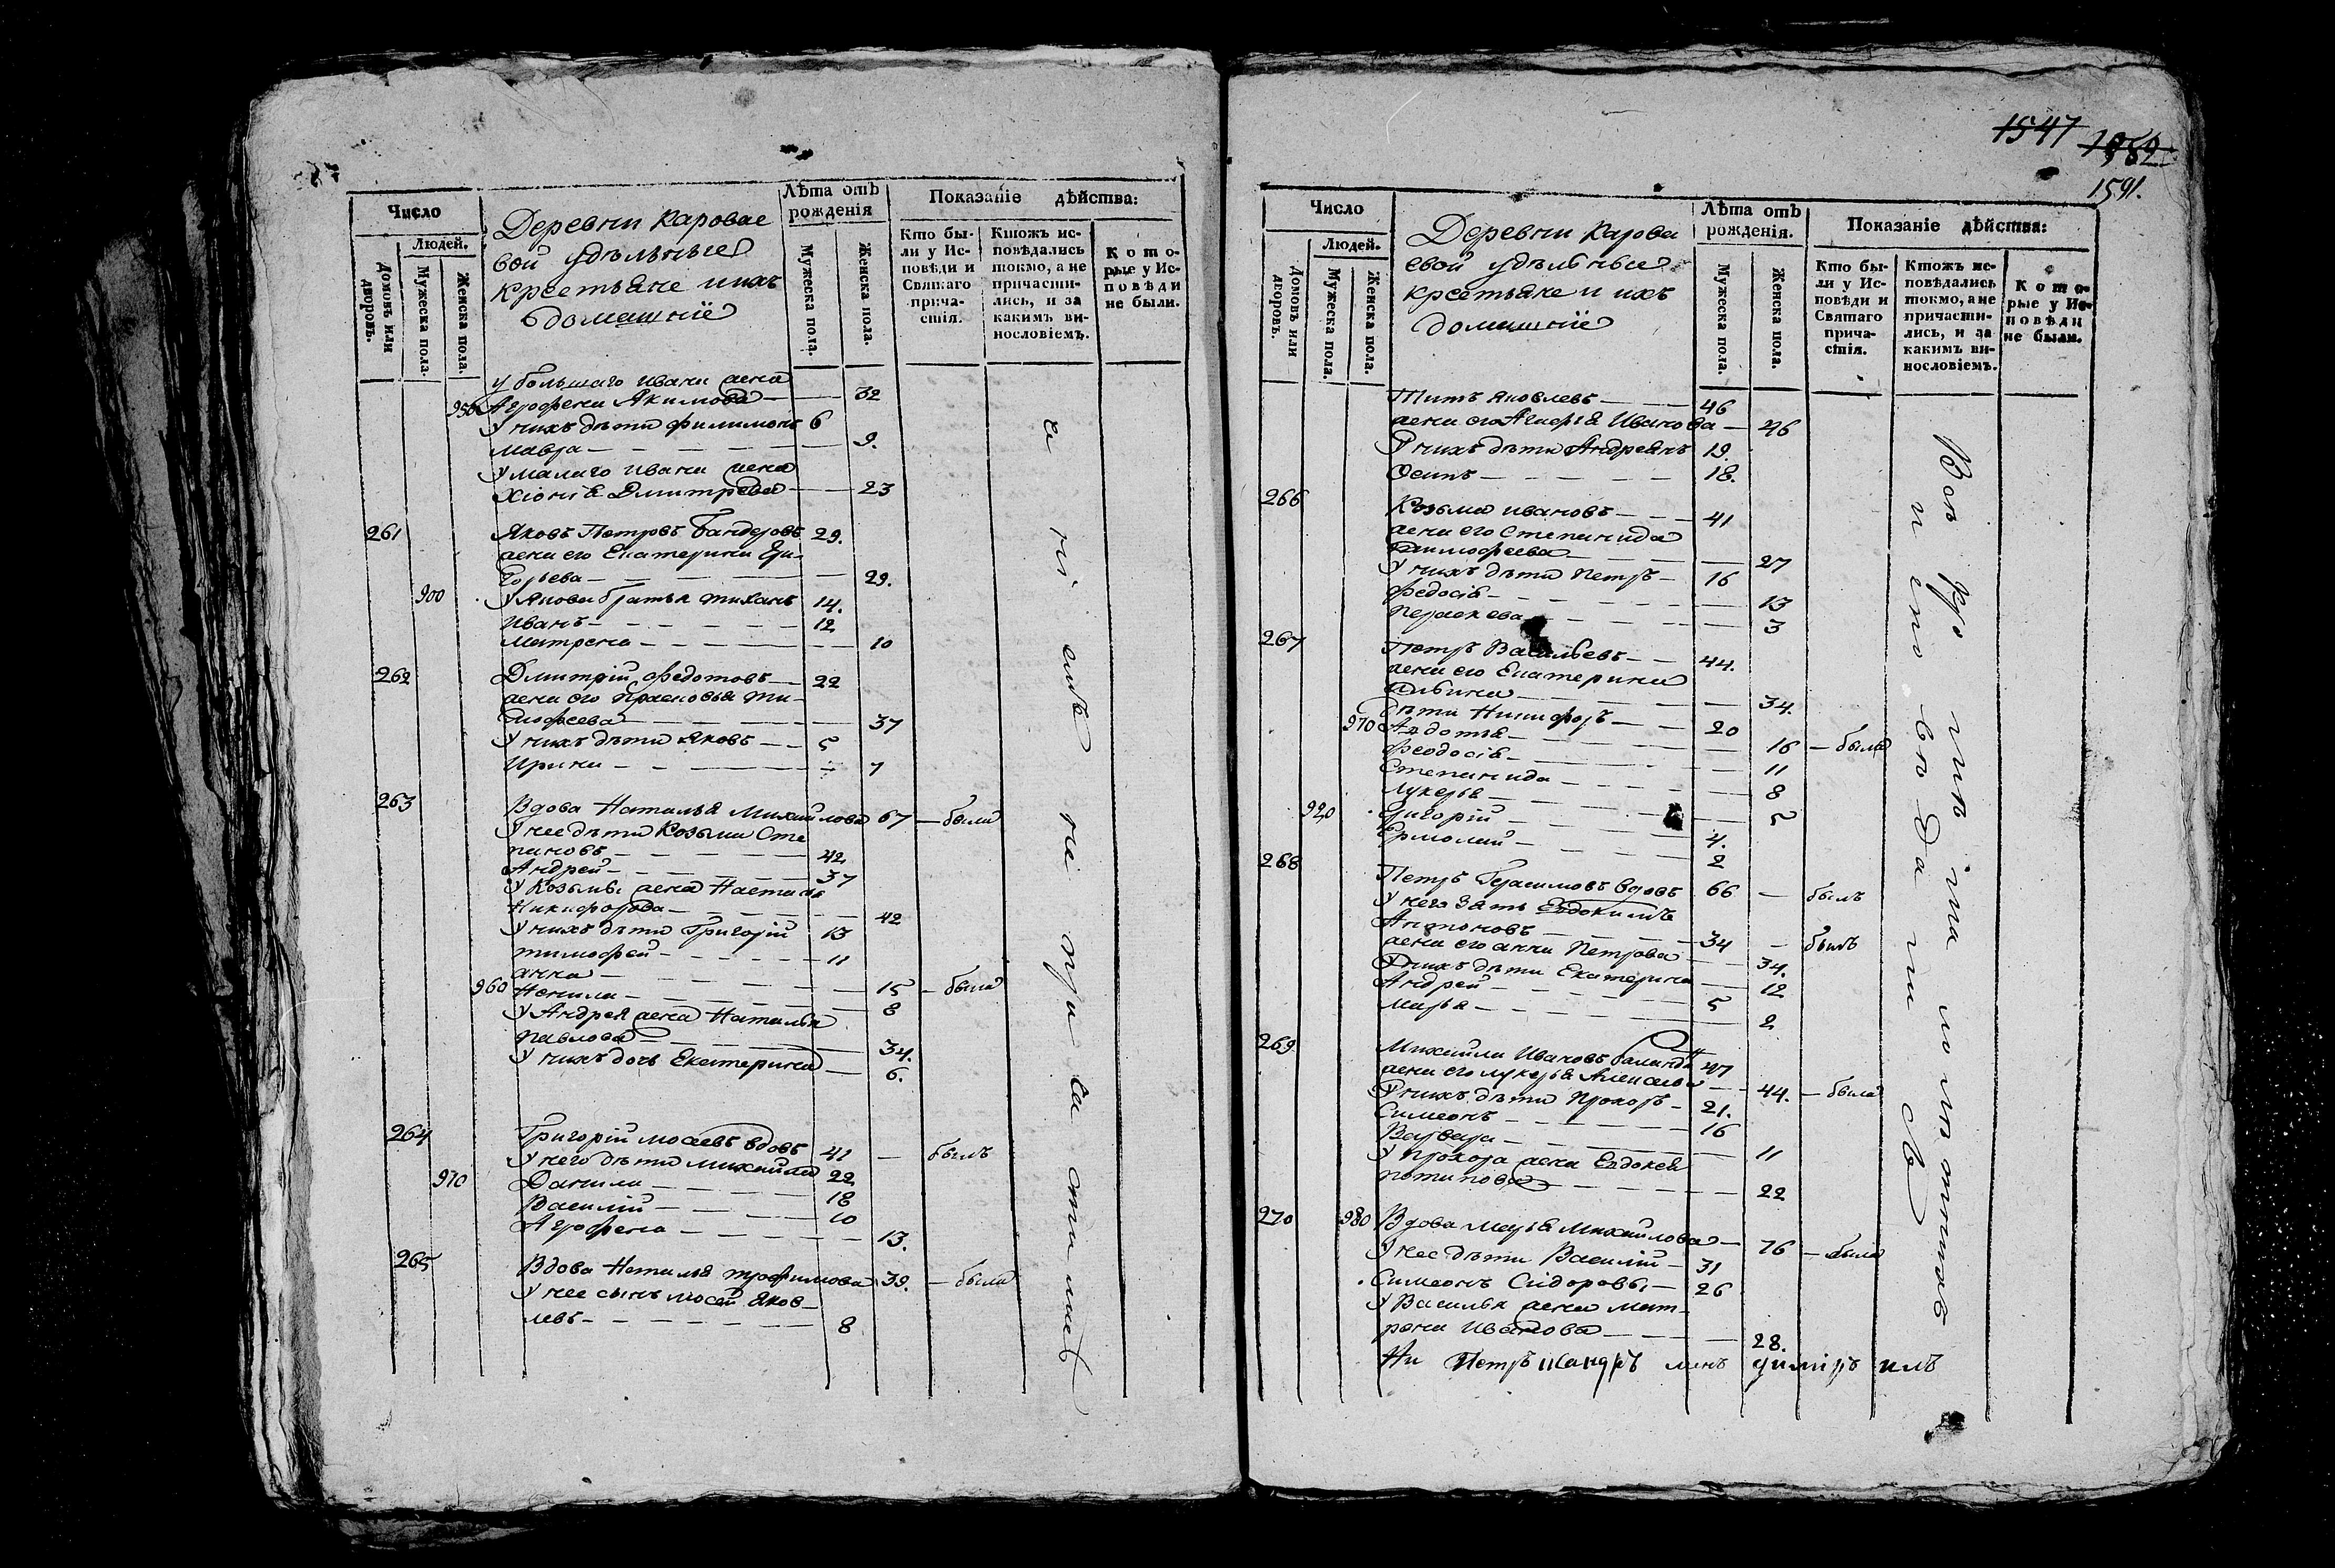 Число
Людей.
Домовъ или дворовъ.
Мужеска пола.
Женска пола.
Деревни Каровае
вой удѣльные
крестьяне и ихъ
домашніе
Лѣта отъ рожденія
Мужеска пола.
Женска пола.
Показаніе дѣйства:
Кто бы-
ли у Ис-
повѣди и
Святаго
прича-
стія.
Ктожъ ис-
повѣдались
токмо, а не
причасти-
лись, и за
какимъ ви-
нословіемъ.
Кото-
рые у Ис-
повѣди
не были.
У большаго Ивана жена
956 Агрофена Якимова — 32
У нихъ дѣти Филимонъ 6
Мавра — 9.
У малаго Ивана жена
Хіонія Дмитрева — 23
261 Яковъ Петровъ 29.
жена его Екатерина Гри-
горьева — 29.
900 У Якова братья Тиханъ 14.
Иванъ — 12
Матрена — 10
262 Дмитрій Федотовъ — 22
жена его Прасковья Ти-
мофеева — 37
У нихъ дѣти Яковъ — 5
Ирина — 7
263 Вдова Наталья Михайлова 67 — была
У нее дѣти Козьма Сте
пановъ — 42
Андрей — 37
У Козьмы жена Настасья
Никифорова — 42
У нихъ дѣти Григорій 13
Тимофей — 11
Анна — 15 — была
960 Ненила — 8
У Андрея жена Наталья
Павлова — 34.
У нихъ дочь Екатерина — 6.
264 Григорій Мосеевъ вдовъ 41 — былъ
У него дѣти Михайла 22
910 Данила — 18
Василій — 10
Агрофена — 13.
265 Вдова Наталья Трофимова 39. — была
У нее сынъ Мосей Яков-
левъ — 8
1547
1591.
Число
Людей.
Домовъ или дворовъ.
Мужеска пола.
Женска пола.
Деревни Карова
евой удѣльные
крестьяне и ихъ
домашніе
Лѣта отъ рожденія.
Мужеска пола.
Женска пола.
Показаніе дѣйства:
Кто бы-
ли у Ис-
повѣди и
Святаго
прича-
стія.
Ктожъ ис-
повѣдались
токмо, а не
причасти-
лись, и за
какимъ ви-
нословіемъ.
Кото-
рые у Ис-
повѣди
не были.
Титъ Яковлевъ — 46
жена его Иванова — 46
У нихъ дѣти Андреянъ 19.
Осипъ — 18.
266 Козьма Ивановъ — 41
жена его Степанида
Тимофеева — 27
У нихъ дѣти Петръ — 16
Федосія — 13
Пераскева — 3
267 Петръ Васильевъ — 44.
жена его Екатерина
— 34.
дѣти Никифоръ — 20
970 Авдотья — 16 — была
Феодосія — 11
Степанида — 8
Лукерья — 5
920 Григорій — 4.
Ермолай — 2
268 Петръ Герасимовъ вдовъ 66 — былъ
У него зять Евдокимъ
Антоновъ — 34 — былъ
жена его Анна Петрова — 34.
У нихъ дѣти Екатерина — 12
Андрей — 5
Марья — 2
269 Михайла Ивановъ 47
жена его Лукерья Алексеева — 44. — была
У нихъ дѣти Прохоръ — 21.
Симеонъ — 16
Варвара — 11
У Прохора жена Евдокея
Потапова — 22
270 980 Вдова Марья Михайлова — 76 — была
У нее дѣти Василій — 31
Симеонъ Сидоровы — 26
У Василья жена Мат-
рена Иванова — 28.